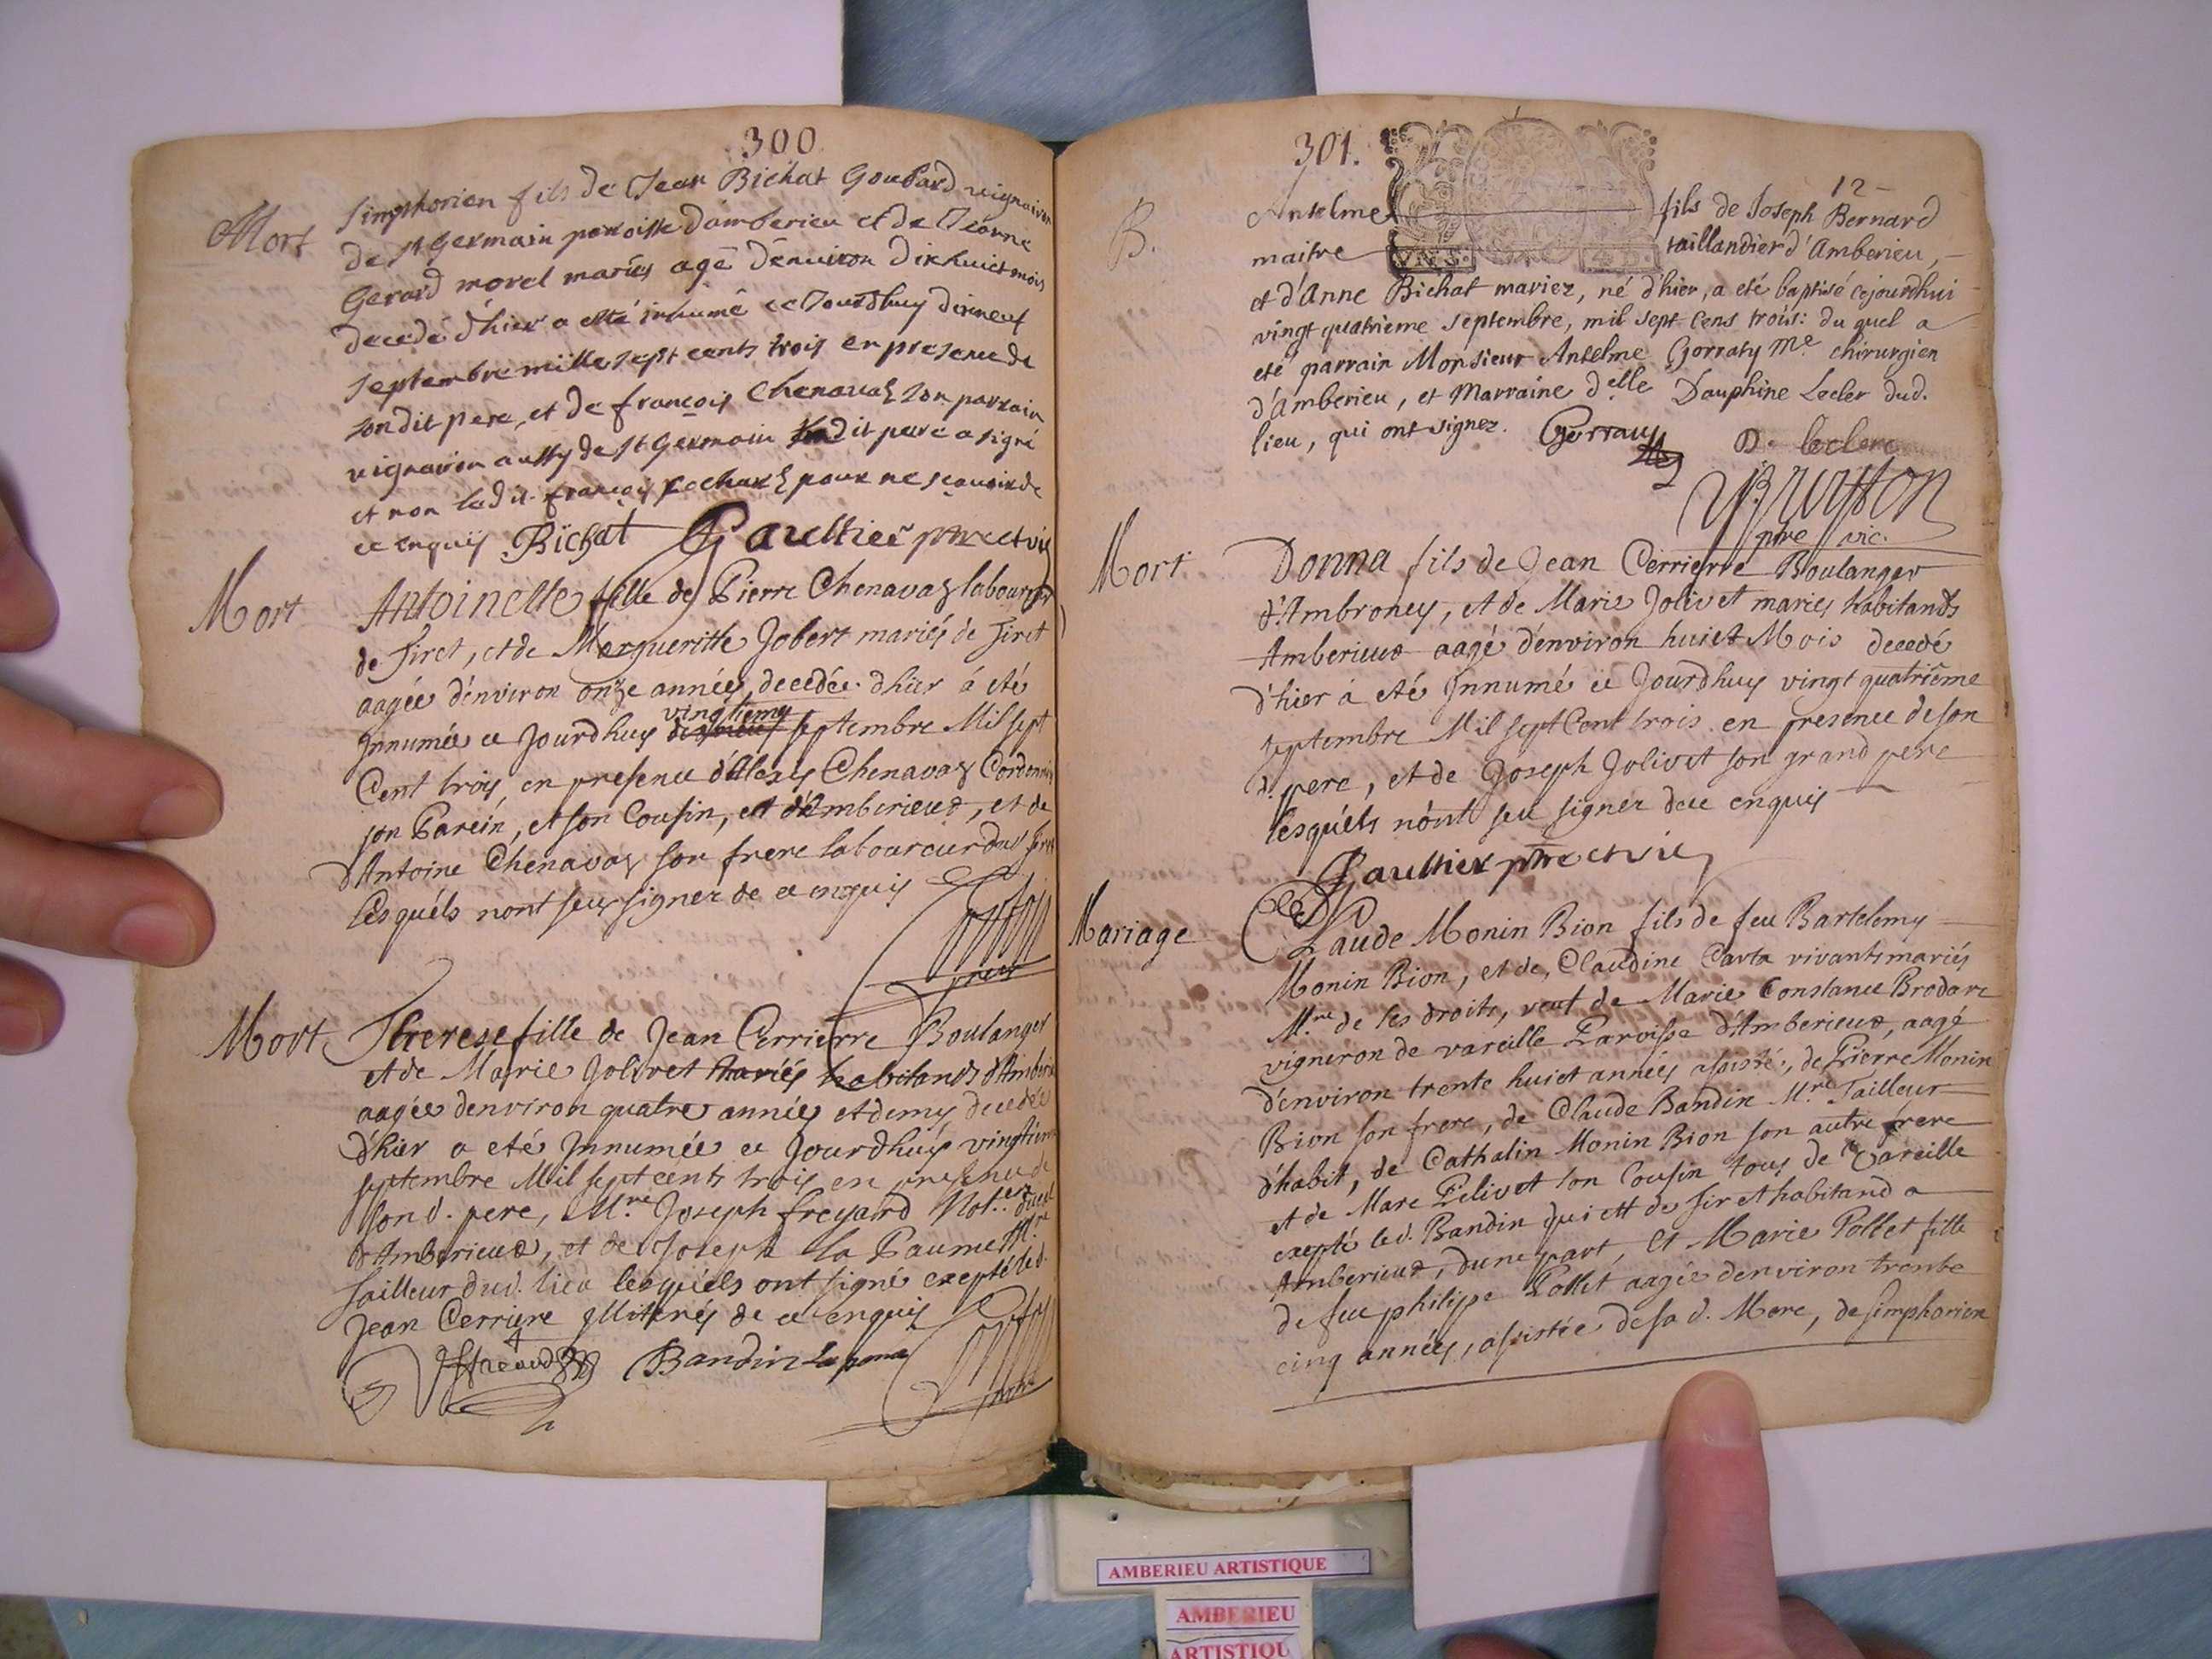 300
Mort
Simphorien fils de Jean Bichat Goubard vigneron
de st Germain paroisse damberieu et de Jeanne
Gerard morel mariés agé denuiron dixhuict mois
decedé d'hier a esté inhumé ce Jourdhuy dixneuf
septembre mille sept cents trois en presence de
son dit pere, et de françois Chenavaz son parrain
vigneron aussy de st Germain dit pere a signé
et non ledit françois pour ne scauoir de
ce enquis Bichat Gaulthier ptre et vic
Mort
Antoinette fille de Pierre Chenavaz laboureur
de Tiret, et de Margueritte Jobert mariés de Tiret
aagée d'environ onze années, decedée d'hier á eté
Innumée ce Jourdhuy vingtiemy septembre Mil sept
Cent trois, en presence d'Alexis Chenavaz Cordonnier
son Parein, et son Cousin, et d'Amberieux, et de
d'Antoine Chenavaz son frere laboureur dud Tiret
lesquéls nont seu signer de ce enquis
Mort
Therese fille de Jean Cerrierre Boulanger
et de Marie Jolivet mariés habitands d'Amberieux
aagée denviron quatre années et demy, decedée
d'hier a eté Innumée ce Jourdhuy vingtieme
septembre Mil sept cents trois en presence de
son d. pere, M.re Joseph freyard Not.re dud
d'Amberieux, et de Joseph la Paume M.re
Tailleur dud. lieu lesquéls ont signé exepté led.
Jean Cerriere Illiterés de ce enquis
Bandin
301.
12
B.
Anselme fils de Joseph Bernard
maitre taillandier d'Amberieu,
4 D.
et d'Anne Bichat mariez, né d'hier, a eté baptisé cejourdhui
vingt quatrieme septembre, mil sept cens trois: du quel a
eté parrain Monsieur Anselme Gorraty Me. chirurgien
d'Amberieu, et Marraine d.elle Dauphine Lecler dud.
lieu, qui ont signez. D. leclerc
Brunon
ptre vic.
Mort
Donna fils de Jean Cerrierre Boulanger
d'Ambroney, et de Marie Jolivet mariés habitands
Amberieux aagé d'environ huict Mois decedé
d'hier á eté Innumé ce Jourdhuy vingt quatriême
septembre Mil sept Cent trois en presence de son
d. pere, et de Joseph Jolivet son grand pere
lesquéls nónt seu signer dece enquis
Gaulthier ptre et vic
Mariage
Claude Monin Bion fils de feu Bartelemy
Monin Bion, et de Claudine Carta vivants mariés
M.re de ses droits, veuf de Marie Constance Brodare
vigneron de vareille Paroisse d'Amberieux, aagé
d'environ trente huict années assisté, de Pierre Monin
Bion son frere, de Claude Bandin M.re Tailleur
d'habit, de Cathalin Monin Bion son autre frere
et de Marc Pelivet son Cousin tous de Vareille
exepté led. Bandin qui est de Tiret habitand a
Amberieux, dune part, Et Marie Pollet fille
de feu philippe Pollet aagée denviron trente
cinq années, assistée de sa d. Mere, de simphorien
AMBERIEU ARTISTIQUE
AMBERIEU
ARTISTIQU